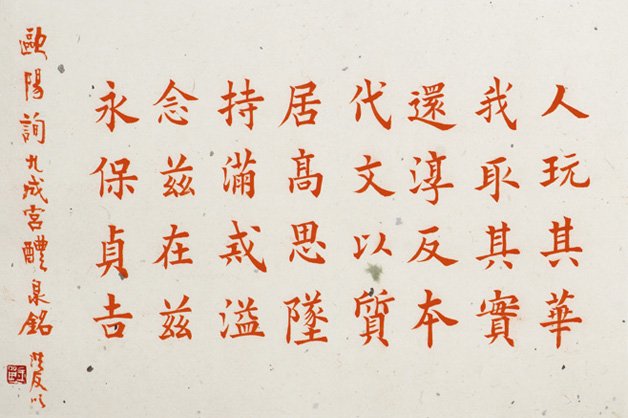 人玩其華
我取其實
還淳反本
代文以質
居高思墜
持滿戒溢
念茲在茲
永保貞吉
歐陽詢九成宮醴泉銘